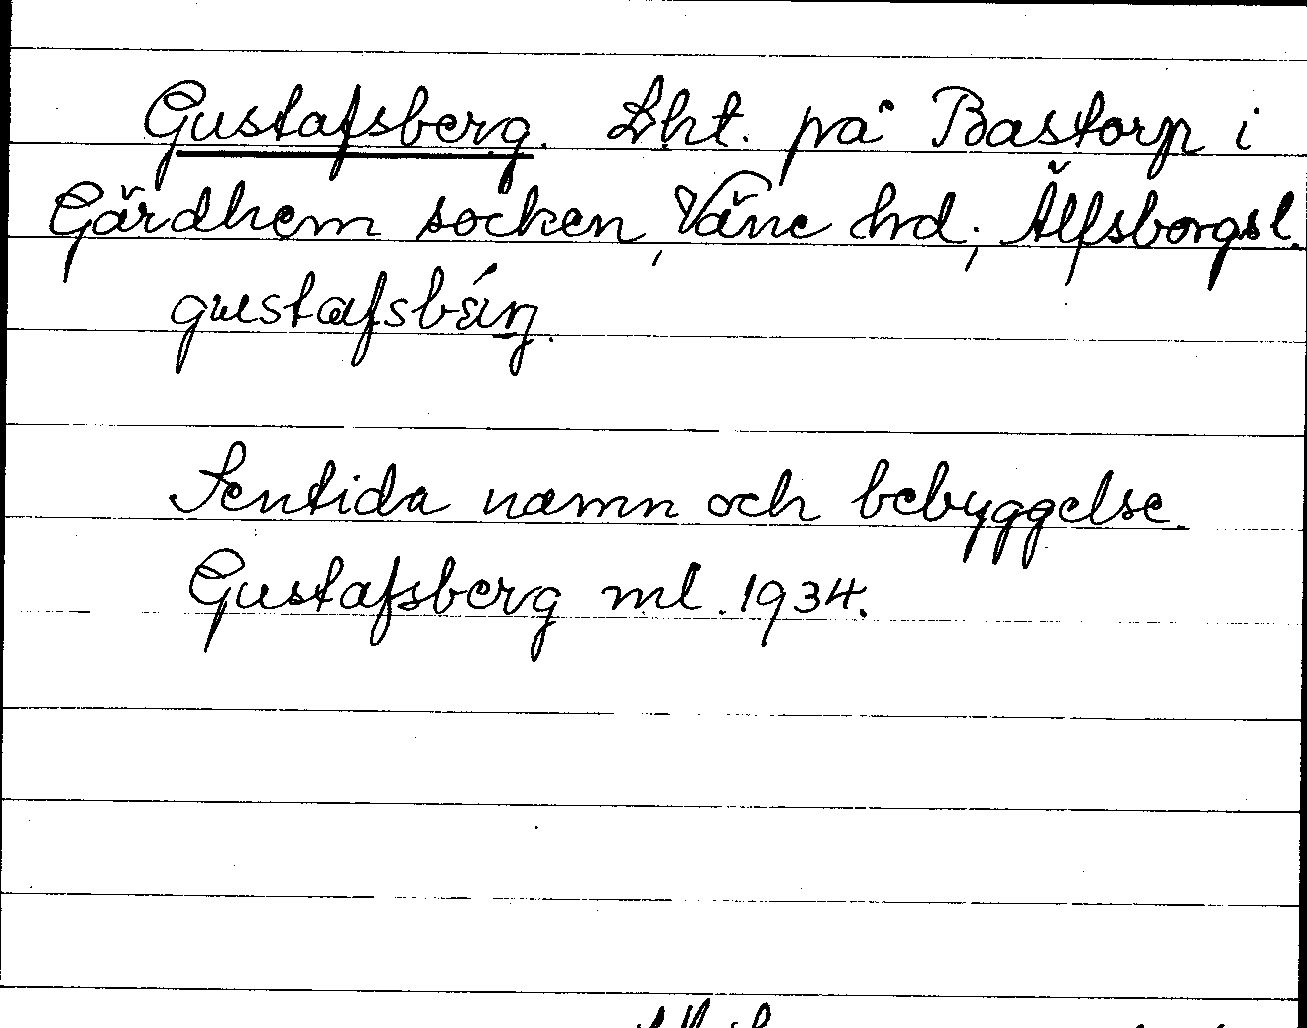 Gustafsberg. Lht. på Bastorp i
Gärdhem socken, Väne hd; Älfsborgsl.
gustafsbáŋ.
Sentida namn och bebyggelse.
Gustafsberg ml. 1934.